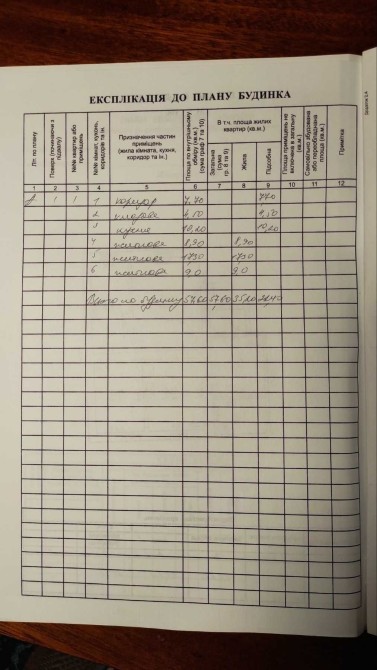 ЕКСПЛІКАЦІЯ ДО ПЛАНУ БУДИНКА
Літ. по плану
Поверх (починаючи з підвалу)
№№ квартир або приміщень
№№ кімнат, кухонь, коридорів та ін.
Призначення частин приміщень (жила кімната, кухня, коридор та ін.)
Площа по внутрішньому обміру (кв.м.) (сума граф 7 та 10)
В т.ч. площа жилих квартир (кв.м.)
Загальна (сума гр. 8 та 9)
Жила
Підсобна
Площа приміщень не включених в загальну (кв.м.)
Самовільно збудована або переобладнана площа (кв.м.)
Примітка
1 2 3 4 5 6 7 8 9 10 11 12
1 1 1 коридор 7,70 7,70
2 4,50 4,50
3 кухня
4 житлова 8,90 8,90
5 житлова 17,30 17,30
6 житлова 9,0 9,0
Всього по будинку 57,60 57,60 35,20